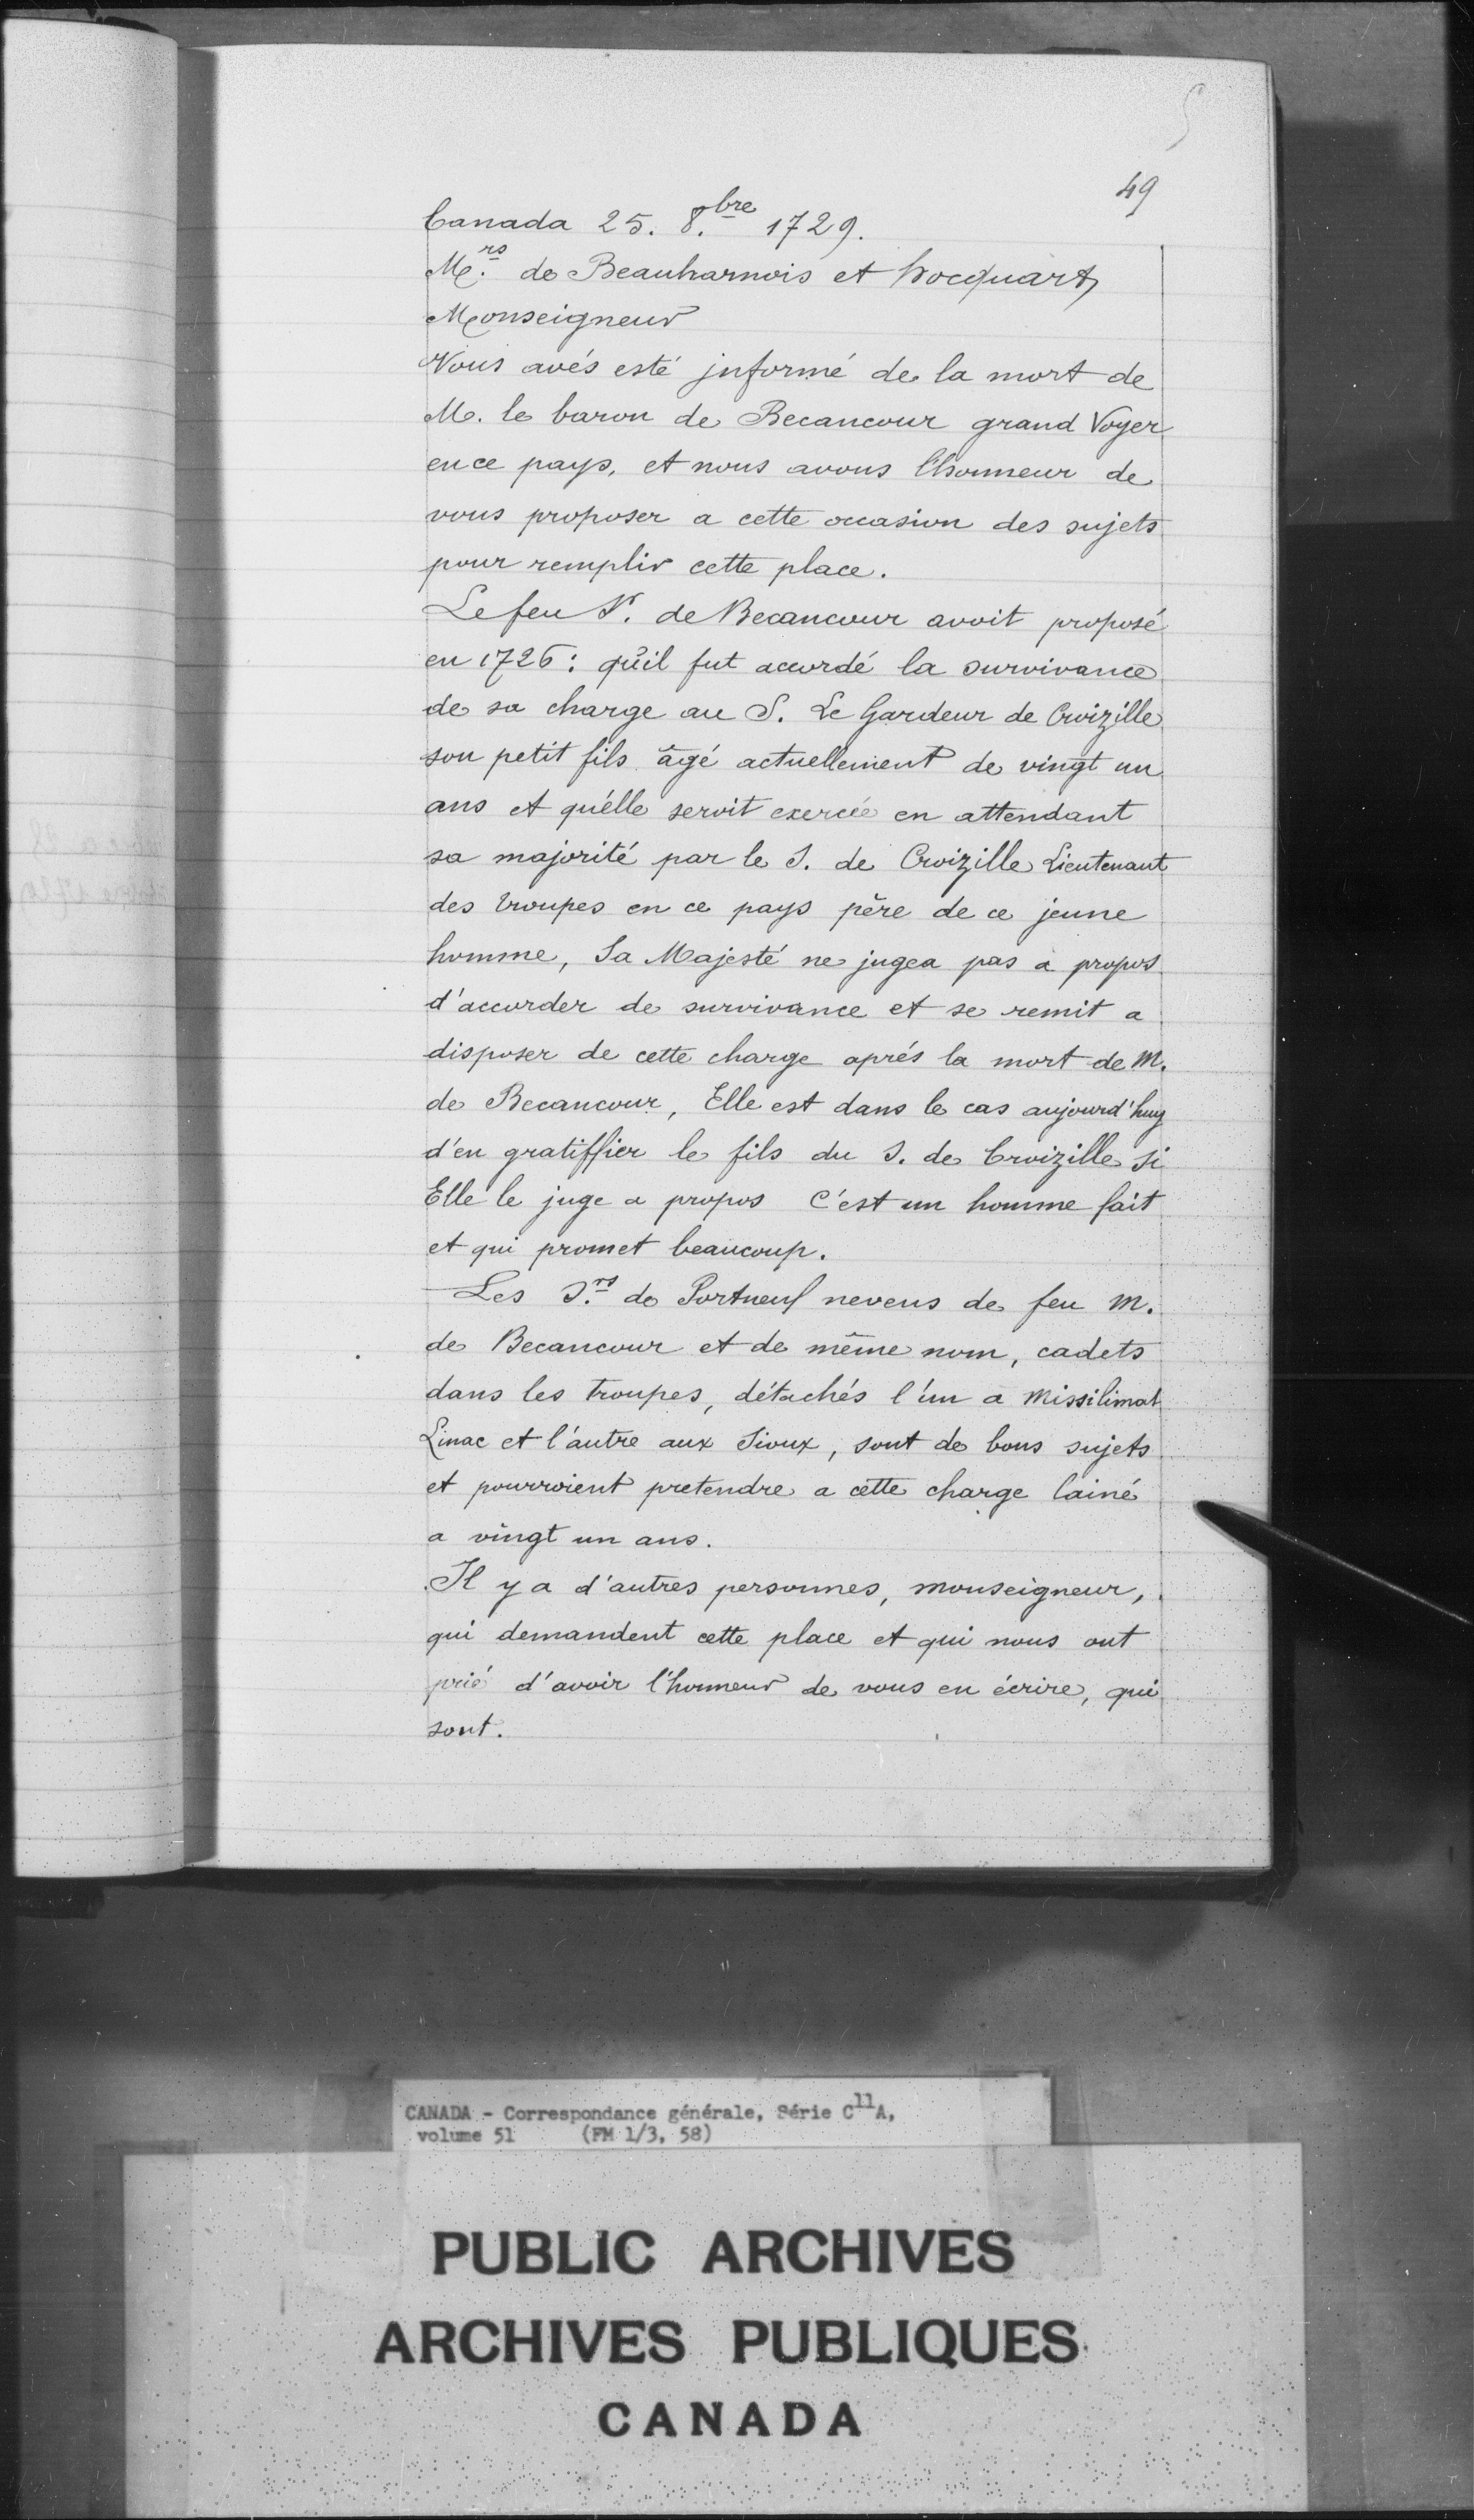 49
Canada 25. 8.bre 1729.
Mrs. de Beauharnois et hocquart,
Monseigneur
Vous avés esté jnformé de la mort de
M. le baron de Becancour grand Voyer
en ce pays, et nous avons l'honneur de
vous proposer a cette occasion des sujets
pour remplir cette place.
Le feu Sr. de Becancour avoit proposé
en 1726: qu'il fut accordé la survivance
de sa charge au S. Le Gardeur de Croizille
son petit fils âgé actuellement de vingt un
ans et qu'elle seroit exercée en attendant
sa majorité par le S. de Croizille Lieutenant
des troupes en ce pays père de ce jeune
homme, Sa Majesté ne jugea pas a propos
d'accorder de survivance et se remit a
disposer de cette charge aprés la mort de M.
de Becancour, Elle est dans le cas aujourd'huy
d'en gratiffier le fils du S. de Croizille si
Elle le juge a propos C'est un homme fait
et qui promet beaucoup.
Les Srs. de Portneuf neveus de feu M.
de Becancour et de même nom, cadets
dans les troupes, détachés l'un a Missilimak
Linac et l'autre aux Sioux, sont de bons sujets
et pourroient pretendre a cette charge lainé
a vingt un ans.
Il y a d'autres personnes, monseigneur,
qui demandent cette place et qui nous ont
prié d'avoir l'honneur de vous en écrire, qui
sont.
CANADA - Correspondance générale, Série C11A,
volume 51 (FM 1/3, 58)
PUBLIC ARCHIVES
ARCHIVES PUBLIQUES
CANADA